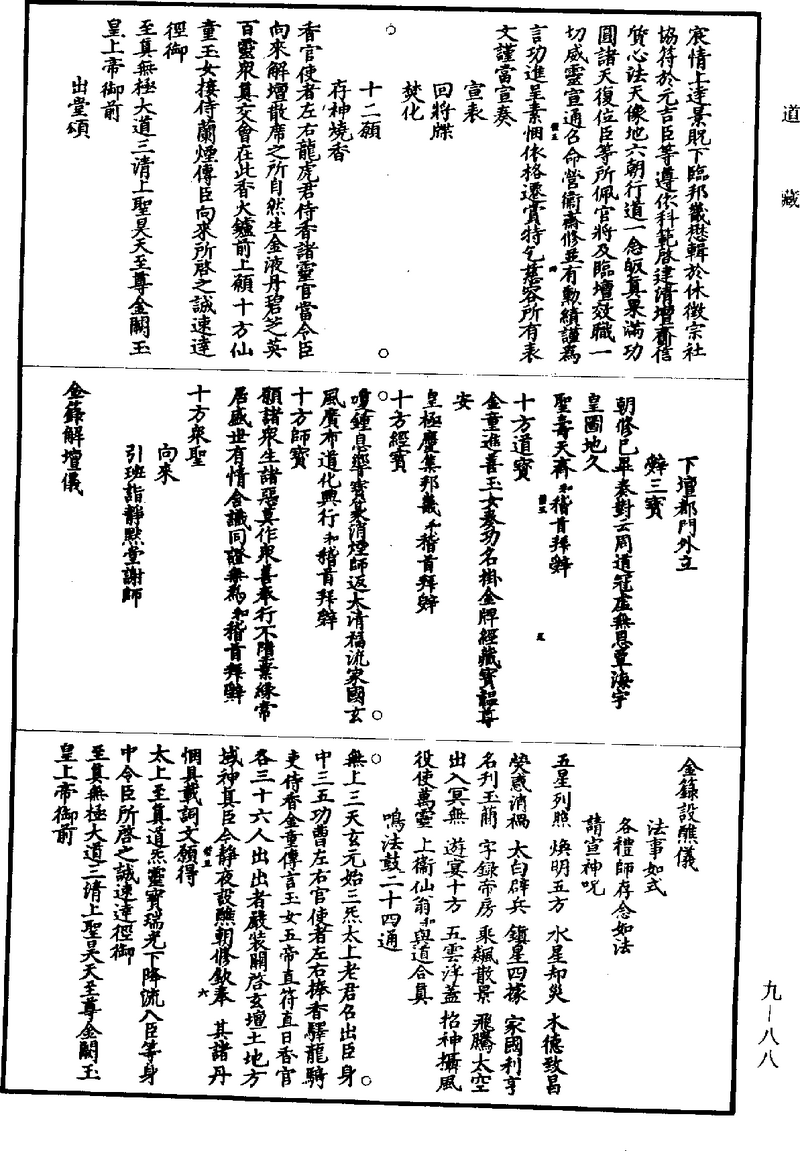 道藏
宸情上達景貺下臨邦畿懋輯於休徵宗社
協符於元吉臣等遵依科範啓建清壇齎信
質心法天像地六朝行道一念皈真果滿功
圓諸天復位臣等所佩官將及臨壇效職一
切威靈宣通召命營衛齋修並有勳績謹為
言功進呈素悃依格遷賞特乞慈容所有表
文謹當宣奏
宣表
回將牒
焚化
十二願
存神燒香
香官使者左右龍虎君侍香諸靈官當令臣
向來解壇散席之所自然生金液丹碧芝英
百靈衆真交會在此香火鑪前上願十方仙
童玉女接侍蘭煙傳臣向來所啓之誠速達
徑御
至真無極大道三清上聖昊天至尊金闕玉
皇上帝御前
出堂頌
下壇都門外立
辭三寶
朝修已畢奏對云周道冠虛無恩覃海宇
皇圖地久
聖壽天齊和稽首拜辭
十方道寶
金童進善玉女奏功名掛金牌經藏寶韞尊
安
皇極慶集邦畿和稽首拜辭
十方經寶
瓊鍾息響寶篆消煙師返大清福流家國玄
風廣布道化興行和稽首拜辭
十方師寶
願諸衆生諸惡莫作衆善奉行不隨業緣常
居盛世有情含識同證無為和稽首拜辭
十方衆聖
向來
引班詣靜默堂謝師
金籙解壇儀
金籙設醮儀
法事如式
各禮師存念如法
請宣神呪
五星列照 煥明五方 水星却災 木德致昌
熒惑消禍 太白辟兵 鎮星四據 家國利亨
名刊玉蕳 字錄帝房 乘飆散景 飛騰太空
出入冥無 遊宴十方 五雲浮蓋 招神攝風
役使萬靈 上衛仙翁和與道合真
鳴法鼓二十四通
無上三天玄元始三炁太上老君召出臣身
中三五功曹左右官使者左右捧香驛龍騎
吏侍香金童傳言玉女五帝直符直日香官
各三十六人出出者嚴裝關啓玄壇土地方
域神真臣今靜夜設醮朝修欽奉 其諸丹
悃具載詞文願得
太上至真道炁靈寶瑞光下降流入臣等身
中令臣所啓之誠速達徑御
至真無極大道三清上聖昊天至尊金闕玉
皇上帝御前
九—八八